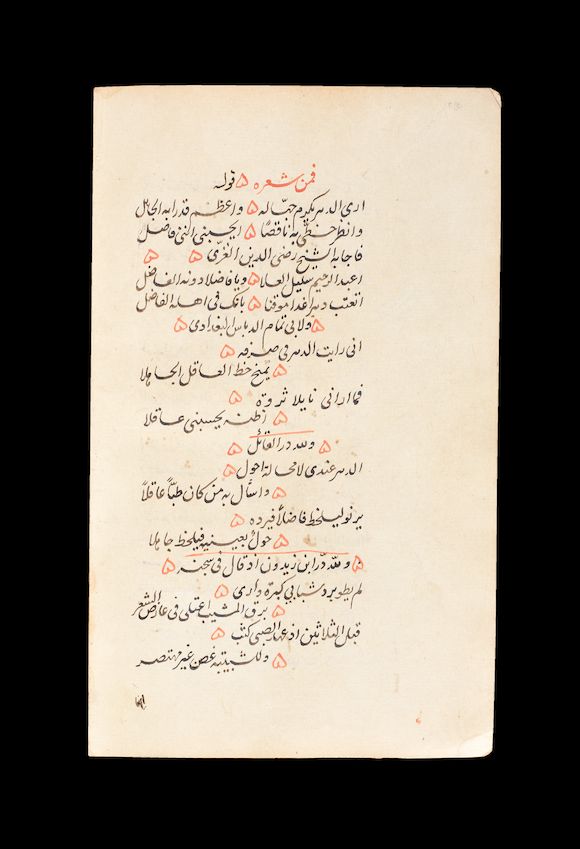 فمن شعره ۵ قوله
ارى الدهر يكرم جهاله ۵ واعظم قدرا به الجاهل
وانظر حظي به ناقصا ۵ ايحسبني انني فاضل
فاجابه الشيخ رضى الدين الغزى ۵ ۵
اعبد الرحيم سليل العلا ۵ ويا فاضلا دونه الفاضل
اتعتب دهرا غدا موقنا ۵ بانك فى اهله الفاضل
۵ ولابى تمام الدباس البغدادى ۵
انى رايت الدهر فى صرفه ۵
۵ يمنح حظ العاقل الجاهلا
فما ارانى نايلا ثروة ۵
۵ اظنه يحسبنى عاقلا
۵ ولله در القائل ۵
الدهر عندى لا محالة احول ۵
۵ واسأل به من كان طبّاً عاقلاً
يرنو ليلحظ فاضلاً فيرده ۵
۵ حول بعينيه فيلحظ جاهلا
۵ ولله درّ ابن زيدون اذ قال فى سجنه ۵
لم يطو برد شبابي كبرة وارى ۵
۵ برق المشيب اعتلى فى عارض الشعر
قبل الثلاثين اذ عهد الصبى كثب ۵
۵ وللشبيبة غصن غير مهتصر